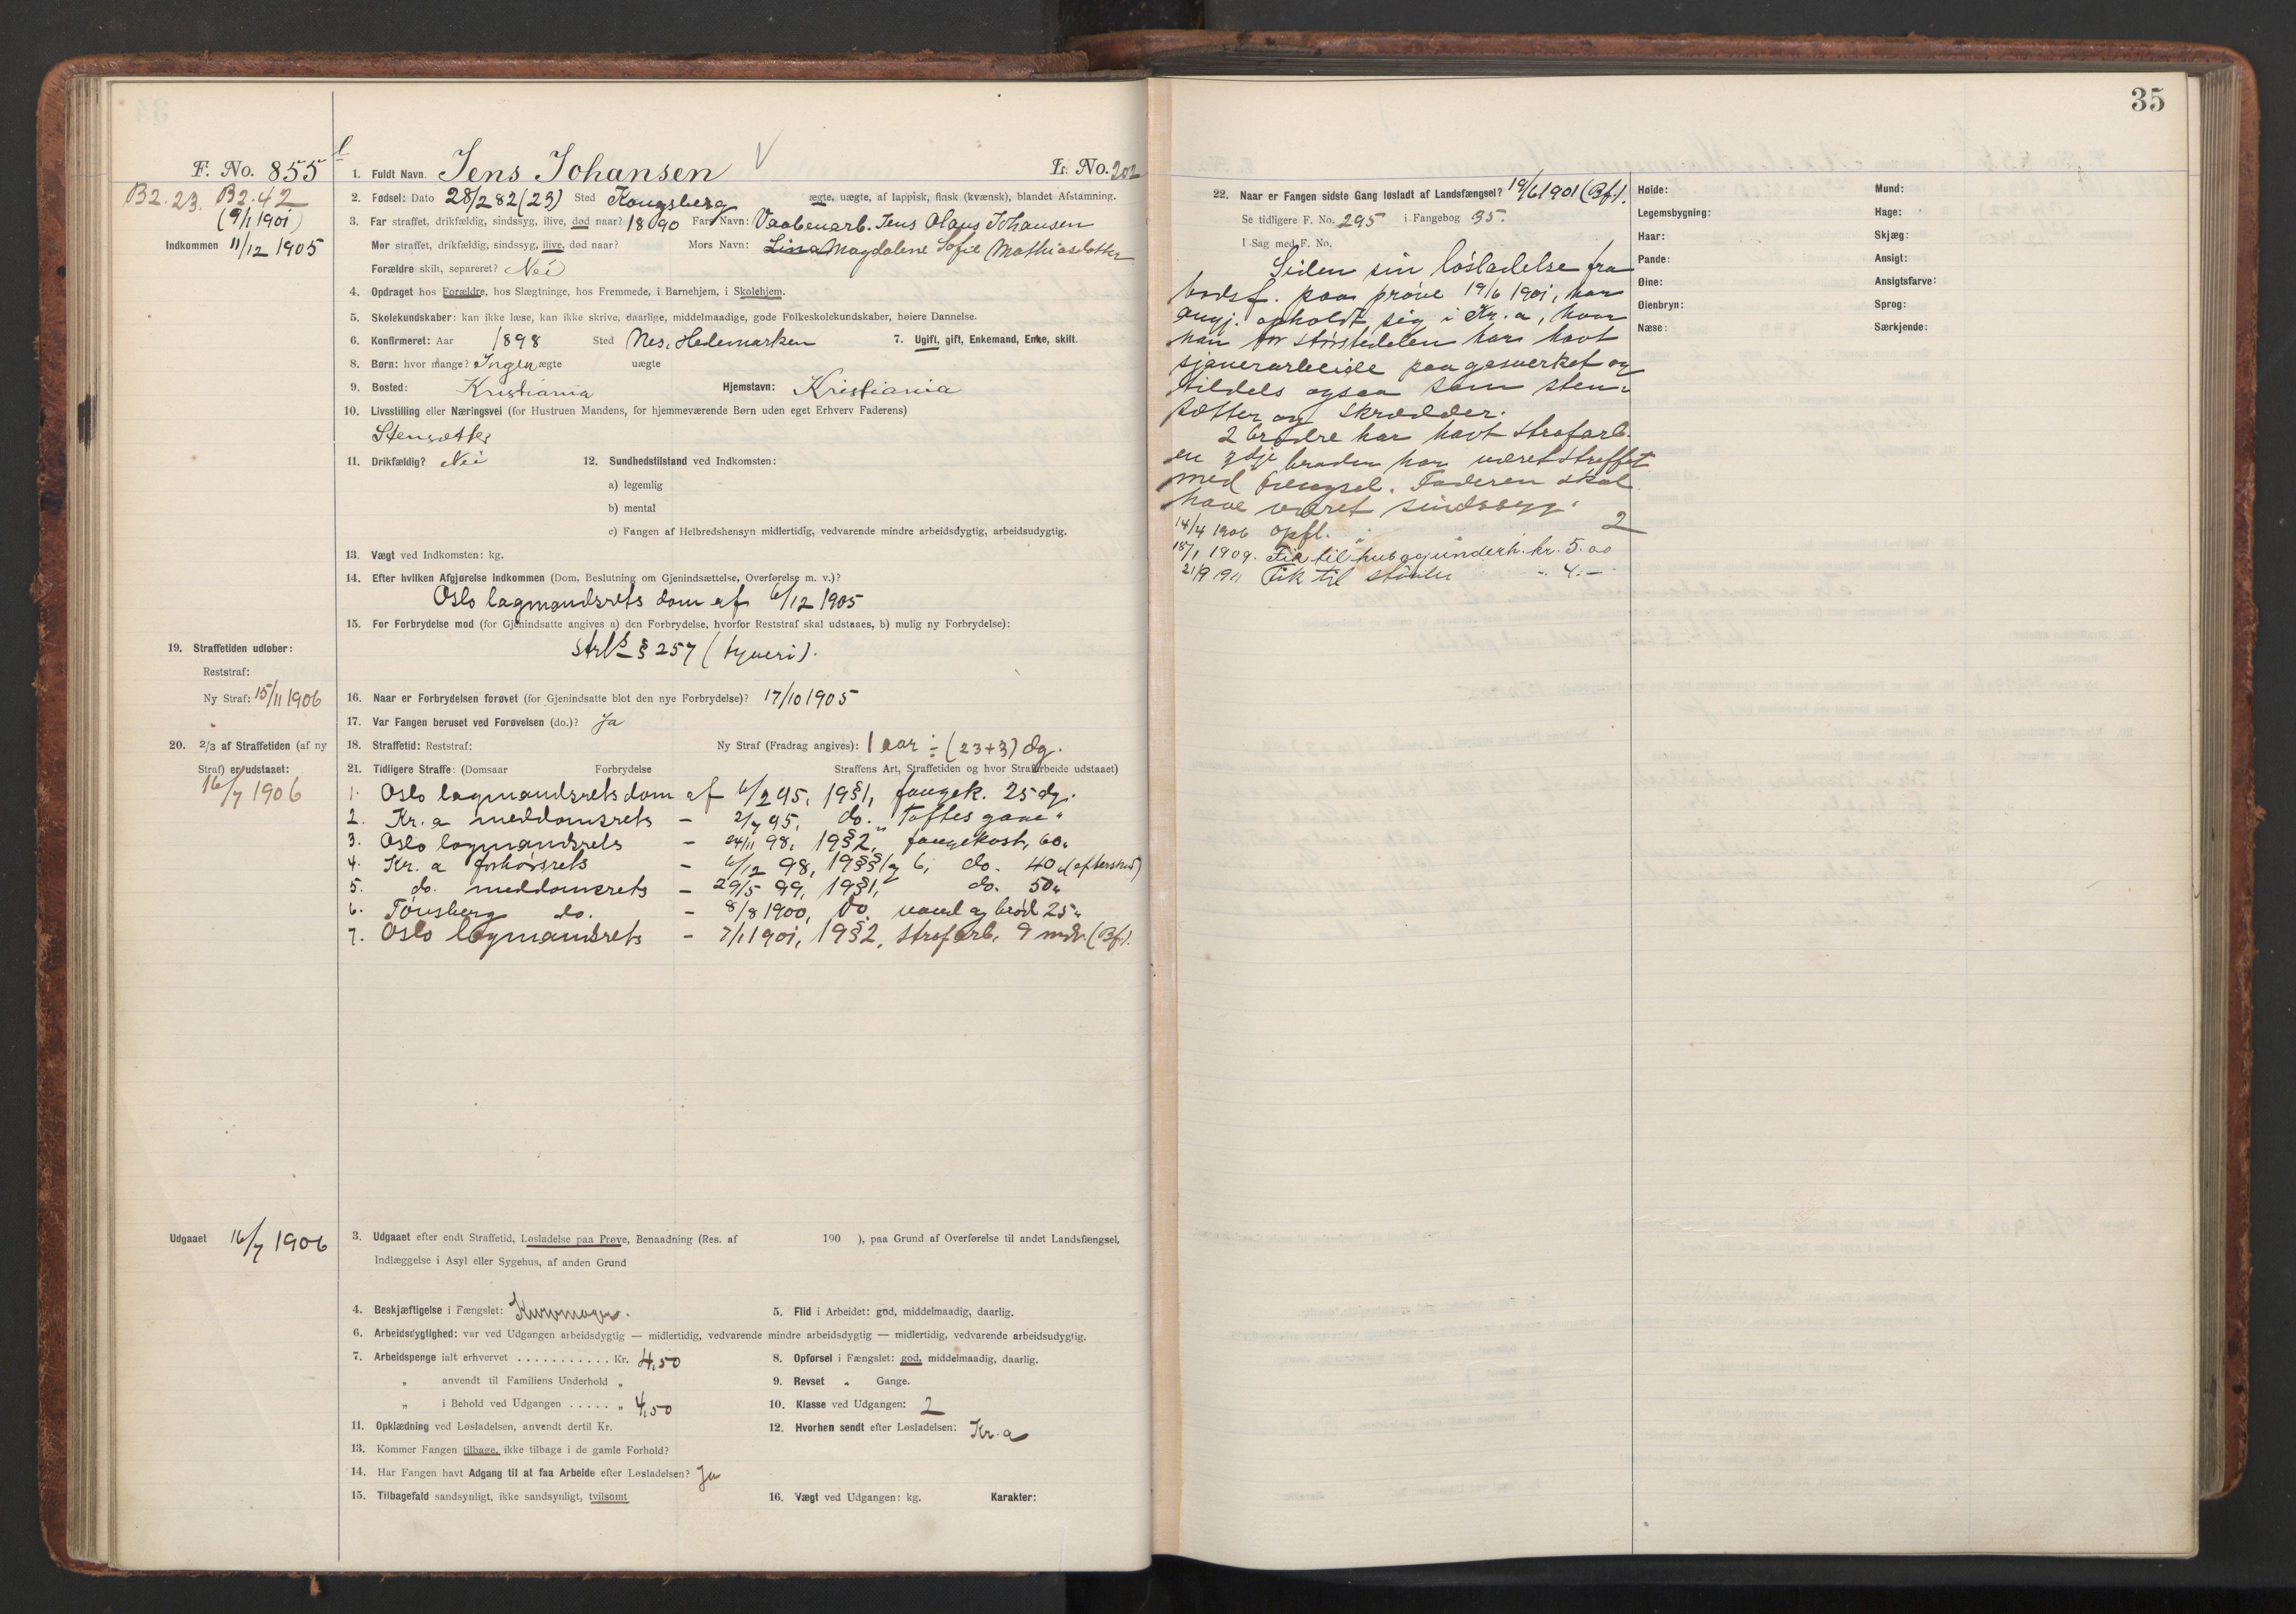 F. No. 855
B2.23. B2.42
(9/1 1901)
Indkommen 11/12 1905
1. Fuldt Navn. Jens Johansen L. No. 202
2. Fødsel: Dato 28/2 82 (23) Sted Kongsberg ægte, uægte, af lappisk, finsk (kvænsk), blandet Afstamning.
3. Far straffet, drikfældig, sindssyg, ilive, død naar? 1890 Fars Navn: Vaabenarb. Jens Olaus Johansen
Mor straffet, drikfældig, sindssyg, ilive, død naar? Mors Navn: Lina Magdalene Sofie Mathiasdatter
Forældre skilt, separeret? Nei
4. Opdraget hos Forældre, hos Slægtninge, hos Fremmede, i Barnehjem, i Skolehjem.
5. Skolekundskaber: kan ikke læse, kan ikke skrive, daarlige, middelmaadige, gode Folkeskolekundskaber, høiere Dannelse.
6. Konfirmeret: Aar 1898 Sted Nes, Hedemarken 7. Ugift, gift, Enkemand, Enke, skilt.
8. Børn: hvor mange? Ingen ægte uægte
9. Bosted: Kristiania Hjemstavn: Kristiania
10. Livsstilling eller Næringsvei (for Hustruen Mandens, for hjemmeværende Børn uden eget Erhverv Faderens)
Stensætter
11. Drikfældig? Nei 12. Sundhedstilstand ved Indkomsten:
a) legemlig
b) mental
c) Fangen af Helbredshensyn midlertidig, vedvarende mindre arbeidsdygtig, arbeidsudygtig.
13. Vægt ved Indkomsten: kg.
14. Efter hvilken Afgjørelse indkommen (Dom, Beslutning om Gjenindsættelse, Overførelse m. v.)?
Oslo lagmandsrets dom af 6/12 1905
15. For Forbrydelse mod (for Gjenindsatte angives a) den Forbrydelse, hvorfor Reststraf skal udstaaes, b) mulig ny Forbrydelse):
Strl § 257 (tyveri).
19. Straffetiden udløber:
Reststraf:
Ny Straf: 15/11 1906
16. Naar er Forbrydelsen forøvet (for Gjenindsatte blot den nye Forbrydelse)? 17/10 1905
17. Var Fangen beruset ved Forøvelsen (do.)? Ja
20. 2/3 af Straffetiden (af ny
Straf) er udstaaet:
16/7 1906
18. Straffetid: Reststraf: Ny Straf (Fradrag angives): 1 aar ÷ (23+3) dg.
21. Tidligere Straffe: (Domsaar Forbrydelse Straffens Art, Straffetiden og hvor Strafarbeide udstaaet)
1. Oslo lagmandsrets dom af 6/2 95, 19§1, fangek. 25 dg.
2. Kr.a meddomsrets – 2/7 95, do. "Toftes gave"
3. Oslo lagmandsrets – 24/11 98, 19§2, fangekost, 60"
4. Kr.a forhørsrets – 6/12 98, 19§§1 og 6, do. 40" (efterskud)
5. do. meddomsrets – 29/5 99, 19§1, do. 50"
6. Tønsberg do. – 8/8 1900, do. vand og brød 25"
7. Oslo lagmandsrets – 7/1 1901, 19§2, strafarb. 9 mdr. (Bf).
Udgaaet 16/7 1906
3. Udgaaet efter endt Straffetid, Løsladelse paa Prøve, Benaadning (Res. af 190 ), paa Grund af Overførelse til andet Landsfængsel,
Indlæggelse i Asyl eller Sygehus, af anden Grund
4. Beskjæftigelse i Fængslet: Kurvmager. 5. Flid i Arbeidet: god, middelmaadig, daarlig.
6. Arbeidsdygtighed: var ved Udgangen arbeidsdygtig — midlertidig, vedvarende mindre arbeidsdygtig — midlertidig, vedvarende arbeidsudygtig.
7. Arbeidspenge ialt erhvervet . . . . . . . . . . . Kr. 4,50 8. Opførsel i Fængslet: god, middelmaadig, daarlig.
" anvendt til Familiens Underhold " 9. Revset " Gange.
" i Behold ved Udgangen . . . . . " 4,50 10. Klasse ved Udgangen: 2
11. Opklædning ved Løsladelsen, anvendt dertil Kr. 12. Hvorhen sendt efter Løsladelsen: Kr.a
13. Kommer Fangen tilbage, ikke tilbage i de gamle Forhold?
14. Har Fangen havt Adgang til at faa Arbeide efter Løsladelsen? Ja
15. Tilbagefald sandsynligt, ikke sandsynligt, tvilsomt 16. Vægt ved Udgangen: kg. Karakter:
35
22. Naar er Fangen sidste Gang løsladt af Landsfængsel? 19/6 1901 (Bf).
Se tidligere F. No. 295 i Fangebog 35.
I Sag med F. No.
Siden sin løsladelse fra
bodsf. paa prøve 19/6 1901, har
angj. opholdt sig i Kr.a, hvor
han for størstedelen har havt
sjauerarbeide paa gasverket og
tildels ogsaa som sten-
sætter og skrædder.
2 brødre har havt strafarb.
en 3dje broder har været straffet
med fængsel. Faderen skal
have været sindssyg.
14/4 1906 opfl. 2
15/1 1909. Fik til hus og underh. kr. 5.00
21/9 1911 Fik til støvler - 4.-
Høide:
Legemsbygning:
Haar:
Pande:
Øine:
Øienbryn:
Næse:
Mund:
Hage:
Skjæg:
Ansigt:
Ansigtsfarve:
Sprog:
Særkjende: